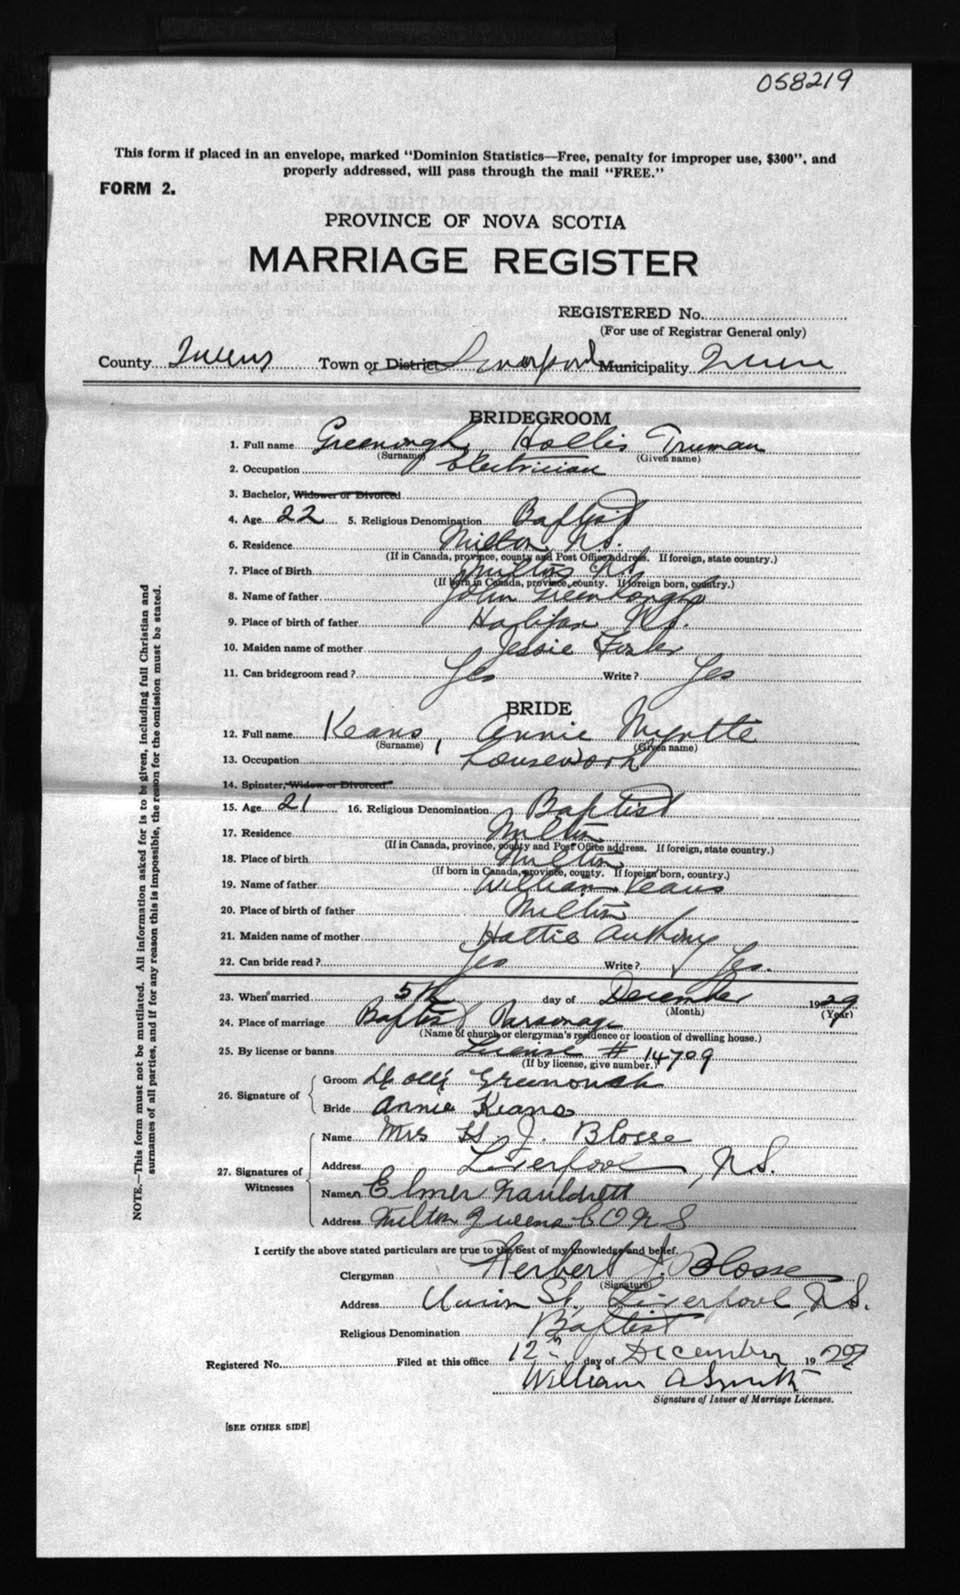 058219
This form if placed in an envelope, marked "Dominion Statistics—Free, penalty for improper use, $300", and
properly addressed, will pass through the mail "FREE."
FORM 2.
PROVINCE OF NOVA SCOTIA
MARRIAGE REGISTER
REGISTERED No.
(For use of Registrar General only)
County Queens Town or District Liverpool Municipality Queens
BRIDEGROOM
1. Full name Greenough Hollis Truman
(Surname) (Given name)
2. Occupation Electrician
3. Bachelor, Widower or Divorced
4. Age 22 5. Religious Denomination Baptist
6. Residence Milton N.S.
(If in Canada, province, county and Post Office address. If foreign, state country.)
7. Place of Birth Milton N.S.
(If born in Canada, province, county. If foreign born, country.)
8. Name of father John Greenough
9. Place of birth of father Halifax N.S.
10. Maiden name of mother Jessie
11. Can bridegroom read? Yes Write? Yes
BRIDE
12. Full name Keans, Annie Myrtte
(Surname) (Given name)
13. Occupation Housework
14. Spinster, Widow or Divorced
15. Age 21 16. Religious Denomination Baptist
17. Residence Milton
(If in Canada, province, county and Post Office address. If foreign, state country.)
18. Place of birth Milton
(If born in Canada, province, county. If foreign born, country.)
19. Name of father William Keans
20. Place of birth of father Milton
21. Maiden name of mother Hattie Anthony
22. Can bride read? Yes Write? Yes.
23. When married 5th day of December 1929
(Month) (Year)
24. Place of marriage Baptist Parsonage
(Name of church or clergyman's residence or location of dwelling house.)
25. By license or banns License # 14709
(If by license, give number.)
26. Signature of
Groom Hollis Greenough
Bride Annie Keans
27. Signatures of Witnesses
Name Mrs H. J. Blosse
Address Liverpool, N.S.
Name Elmer
Address Milton Queens CO N S
I certify the above stated particulars are true to the best of my knowledge and belief.
Clergyman Herbert J. Blosse
(Signature)
Address Union St., Liverpool, N.S.
Religious Denomination Baptist
Registered No. Filed at this office 12th day of December 1929
William A Smith
Signature of Issuer of Marriage Licenses.
[SEE OTHER SIDE]
NOTE.—This form must not be mutilated. All information asked for is to be given, including full Christian and
surnames of all parties, and if for any reason this is impossible, the reason for the omission must be stated.